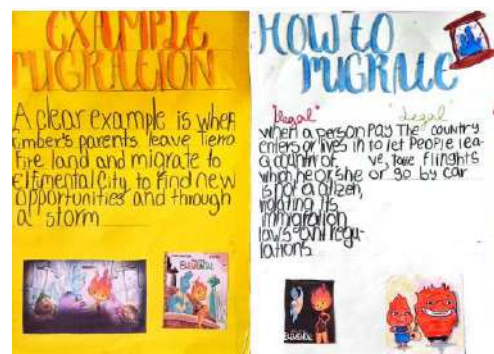 EXAMPLE
MIGRATION
A clear example is when
Ember's parents leave Tierra
Fire land and migrate to
Elfimental City to find new
opportunities and through
a storm
ELEMENTAL
HOW TO
MIGRATE
"Ilegal"
when a person
enters or lives in
a country of
which he or she
is not a citizen,
violating its
immigration
laws and regu-
lations
"Legal"
Pay The country
to let People lea-
ve, take flinghts
or go by car
ELEMENTAL